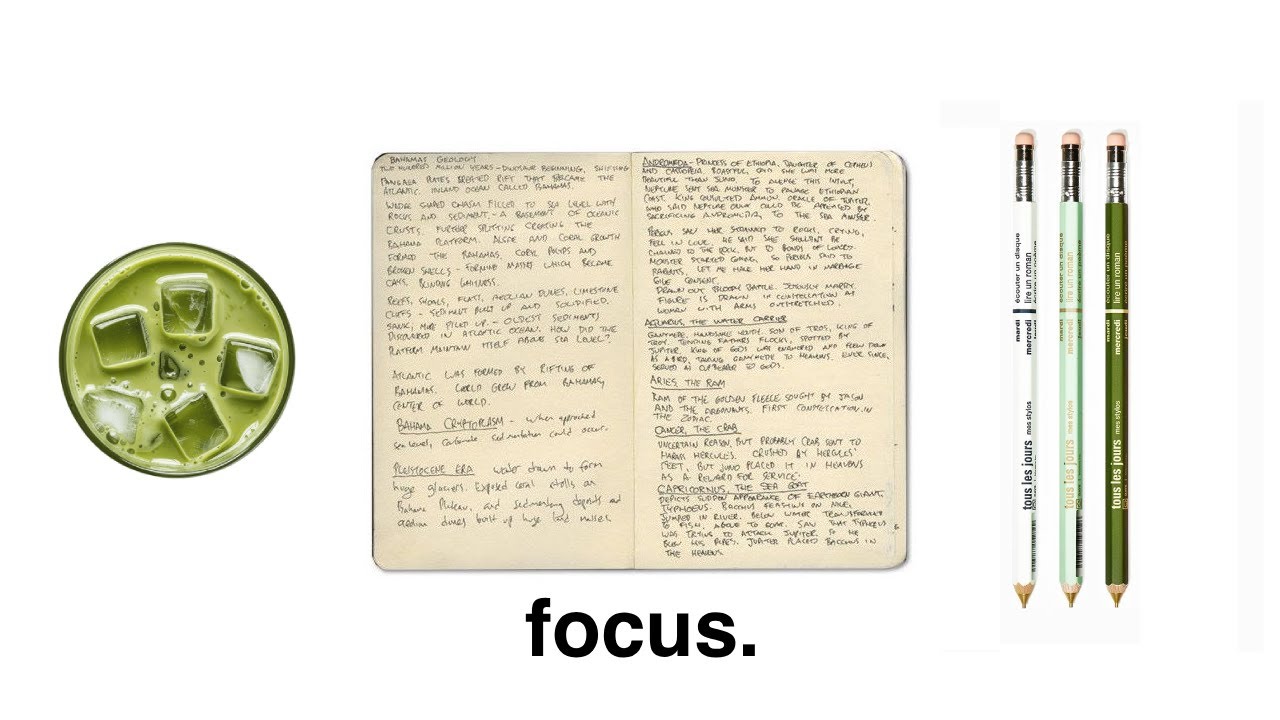 BAHAMAS GEOLOGY
TWO HUNDRED MILLION YEARS - DINOSAUR BEGINNING, SHIFTING
PANGAEA PLATES CREATED RIFT THAT BECAME THE
ATLANTIC INLAND OCEAN CALLED BAHAMAS.
WEDGE SHAPED CHASM FILLED TO SEA LEVEL WITH
ROCKS AND SEDIMENT - A BASEMENT OF OCEANIC
CRUST, FURTHER SPLITTING CREATING THE
BAHAMA PLATFORM. ALGAE AND CORAL GROWTH
FORMED THE BAHAMAS, CORAL POLYPS AND
BROKEN SHELLS - FORMING MASSES WHICH BECAME
CAYS,
REEFS, SHOALS, FLATS, AEOLIAN DUNES, LIMESTONE
CLIFFS - SEDIMENT BUILT UP AND SOLIDIFIED,
SANK, MORE PILED UP - OLDEST SEDIMENTS
DISCOVERED IN ATLANTIC OCEAN. HOW DID THE
PLATFORM MAINTAIN ITSELF ABOVE SEA LEVEL?
ATLANTIC WAS FORMED BY RIFTING OF
BAHAMAS. WORLD GREW FROM BAHAMAS,
CENTER OF WORLD.
BAHAMA CRYPTOPLASM - When approached
sea level, carbonate sedimentation could occur.
PLEISTOCENE ERA water drawn to form
huge glaciers. Exposed coral atolls on
Bahama Plateau, and sedimentary deposits and
aeolian dunes built up huge land masses.
ANDROMEDA - PRINCESS OF ETHIOPIA, DAUGHTER OF CEPHEUS
AND CASSIOPEIA BOASTFUL, SAID SHE WAS MORE
BEAUTIFUL THAN JUNO. TO AVENGE THIS INSULT,
NEPTUNE SENT SEA MONSTER TO RAVAGE ETHIOPIAN
COAST. KING CONSULTED AMMON, ORACLE OF JUPITER,
WHO SAID NEPTUNE ONLY COULD BE APPEASED BY
SACRIFICING ANDROMEDA, TO THE SEA MONSTER.
PERSEUS SAW HER STRAPPED TO ROCKS, CRYING,
FELL IN LOVE. HE SAID SHE SHOULDN'T BE
CHAINED TO THE ROCK, BUT TO BONDS OF LOVERS.
MONSTER STARTED COMING, SO PERSEUS SAID TO
PARENTS, LET ME HAVE HER HAND IN MARRIAGE
GIVE CONSENT.
DRAWN OUT BLOODY BATTLE. JOYOUSLY MARRY.
FIGURE IS DRAWN IN CONSTELLATION AS
WOMAN WITH ARMS OUTSTRETCHED.
AQUARIUS, THE WATER CARRIER
GANYMEDE, HANDSOME YOUTH, SON OF TROS, KING OF
TROY, TENDING FATHERS FLOCKS, SPOTTED BY
JUPITER. KING OF GODS WAS ENAMORED AND FLEW DOWN
AS A BIRD, TAKING GANYMEDE TO HEAVENS. EVER SINCE,
SERVED AS CUPBEARER TO GODS.
ARIES, THE RAM
RAM OF THE GOLDEN FLEECE SOUGHT BY JASON
AND THE ARGONAUTS. FIRST CONSTELLATION IN
THE ZODIAC.
CANCER, THE CRAB
UNCERTAIN REASON, BUT PROBABLY CRAB SENT TO
HARASS HERCULES. CRUSHED BY HERCULES'
FEET, BUT JUNO PLACED IT IN HEAVENS
AS A REWARD FOR SERVICE.
CAPRICORNUS, THE SEA GOAT
DEPICTS SUDDEN APPEARANCE OF EARTHBORN GIANT,
TYPHOEUS. BACCHUS FEASTING ON NILE,
JUMPED IN RIVER. BELOW WATER TRANSFORMED
TO FISH, ABOVE TO GOAT. SAW THAT TYPHOEUS
WAS TRYING TO ATTACK JUPITER, SO HE
BLEW HIS PIPES. JUPITER PLACED BACCHUS IN
THE HEAVENS.
tous les jours mes stylos mardi écouter un disque
mercredi lire un roman
tous les jours mes stylos mercredi lire un roman
tous les jours mes stylos mercredi lire un roman écouter un disque
focus.